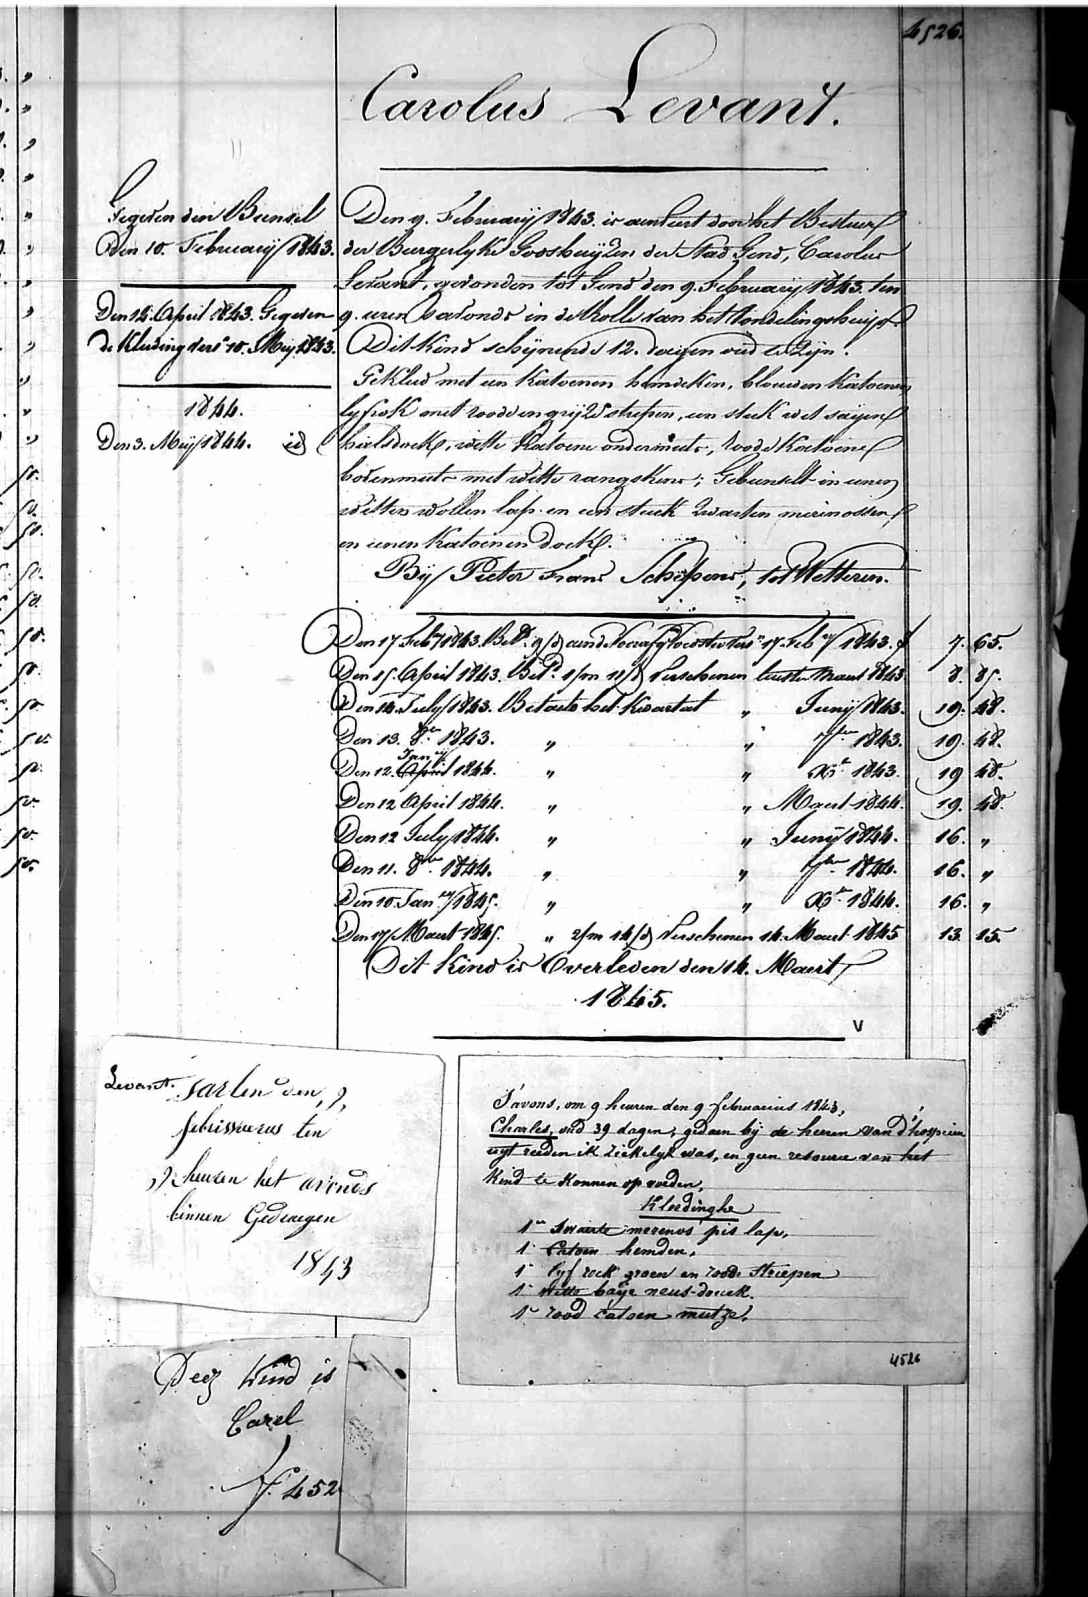 4526.
Carolus Levant.
Gegeven den Bunsel
Den 10. Februarij 1843.
Den 12. April 1843. Gegeven
de Kleeding der 10. Meij 1843.
1844.
Den 3. Meij 1844. id
Den 9. Februarij 1843. is aenveert door het Bestuer
der Burgerlyke Godshuijzen der Stad Gend, Carolus
Levant, gevonden tot Gend den 9. Februarij 1843. ten
9. uren 's avonds in de Rolle van het Vondelingshuijs.
Dit Kind schijnende 12. dagen oud te Zijn.
Gekleed met een Katoenen hemdeken, blouwen Katoenen
lyfrok met roode en grijze strepen, een stuk wit saijen
halsdoek, witte Katoene ondermuts, roode Katoene
bovenmuts met witte rangskens; Gebunselt in eenen
witten wollen lap en een stuk zwarten merinossen
en eenen Katoenen doek.
Bij Pieter Frans Schepens, tot Wetteren.
Den 17 Feb 1843. 17 Feb 1843. 7. 65.
Den 15. April 1843. Bet. 1/m 11/d Verschenen Maert 1843 8. 85.
Den 14. July 1843. Betaelt het Kwartael „ Junij 1843. 19. 48.
Den 13. 8br 1843. „ „ 7ber 1843. 19. 48.
Janrij
Den 12. April 1844. „ „ Xbr 1843. 19 48.
Den 12 April 1844. „ „ Maert 1844. 19. 48.
Den 12 July 1844. „ „ Junij 1844. 16. „
Den 11. 8br 1844. „ „ 7ber 1844. 16. „
Den 10. Janry 1845. „ „ Xbr 1844. 16. „
Den 17 Maert 1845. „ 2/m 14/d Verschenen 14. Maert 1845 13. 15.
Dit Kind is Overleden den 14. Maert
1845.
V
Levant. Sarlen den 9,
febriwarus ten
9 heuren het avends
binnen Gedragen
1843
S'avons, om 9 heuren den 9 februarius 1843,
Charles, oud 39 dagen; gedaen bij de heeren van d'hospicien
uyt reeden ik ziekelyk was, en geen resource van het
Kind te konnen op voeden,
Kleedinghe
1 swarte merenos pis lap,
1 Catoen hemden,
1 lyf rock groen en roode striepen
1 witte baije neus-douck.
1 rood catoen mutze.
4526
Deez kind is
Carel
N. 452